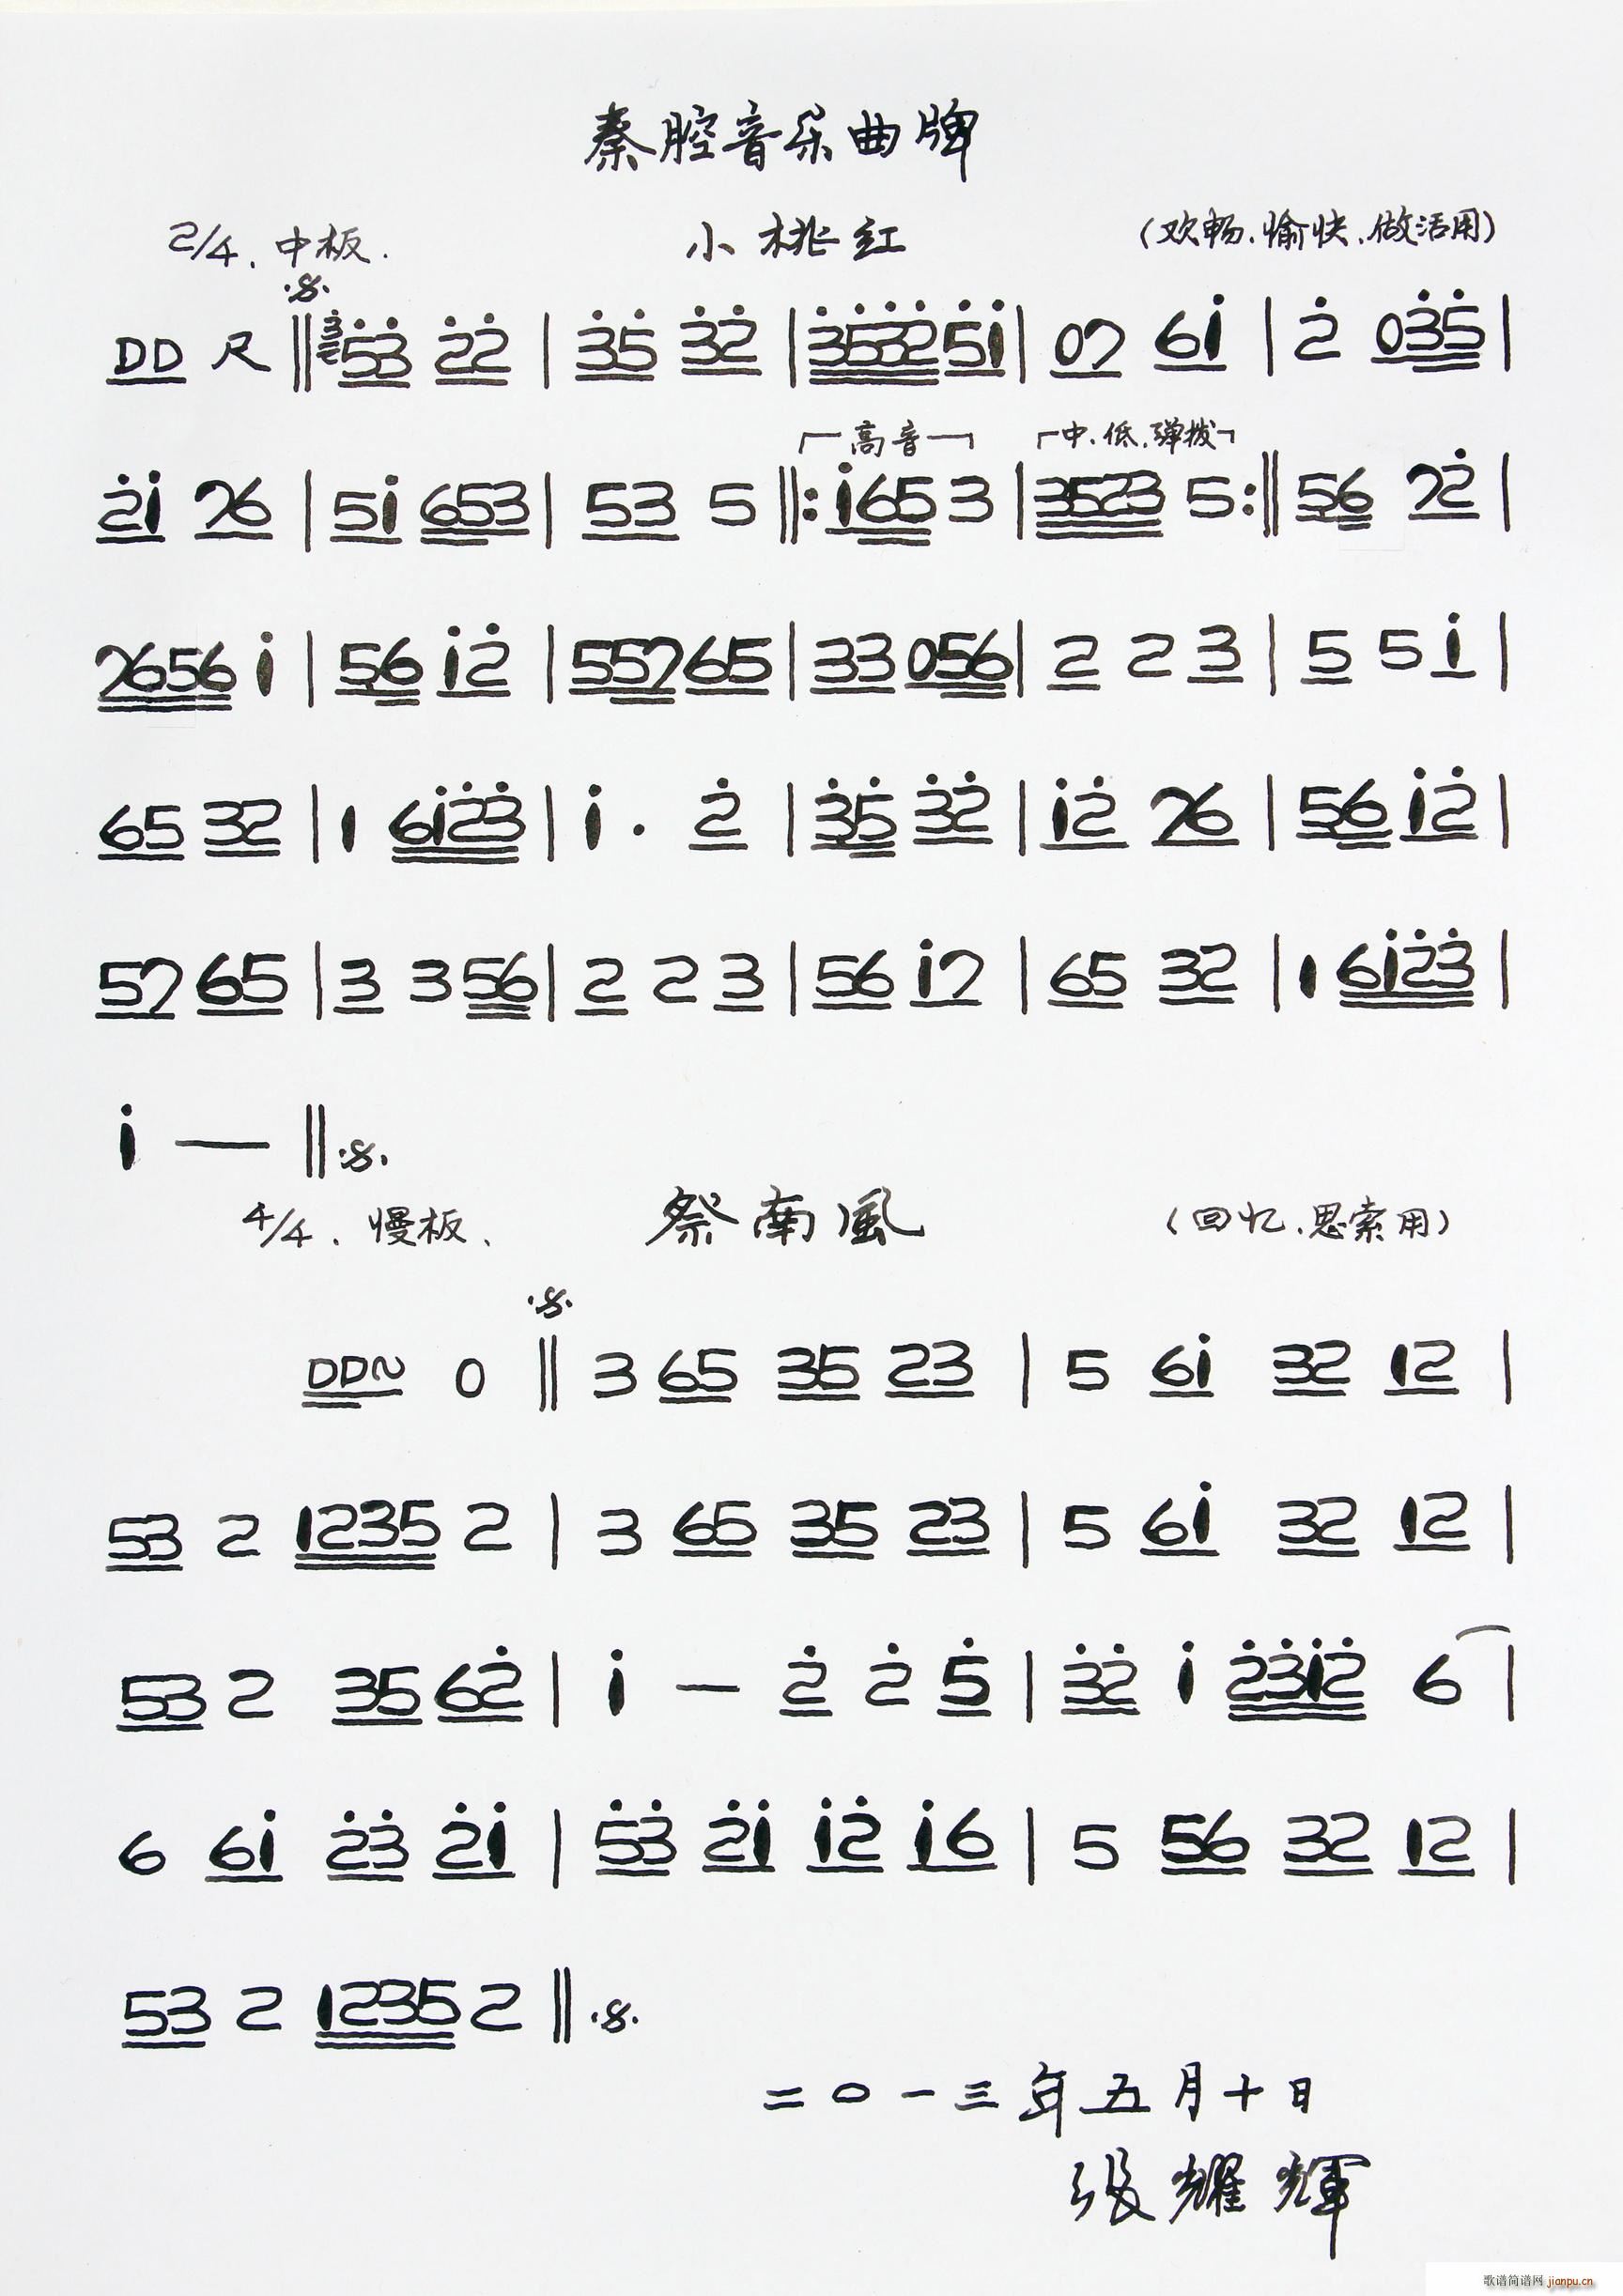 秦腔音乐曲牌
2/4、中板. 小桃红 (欢畅、愉快、做活用)
DD 尺 ‖ 5̇3̇ 2̇2̇ | 3̇5̇ 3̇2̇ | 3̇5̇3̇2̇ 5̇i | 07 6i | 2̇ 03̇5̇ |
┌高音┐ ┌中、低、弹拨┐
2̇i 76 | 5i 653 | 53 5 ‖: i65 3 | 3523 5 :‖ 56 72̇ |
7656 i | 56 i2̇ | 557 65 | 33 056 | 2 2 3 | 5 5 i |
65 32 | 1 6i2̇3̇ | i · 2̇ | 3̇5̇ 3̇2̇ | i2̇ 76 | 56 i2̇ |
57 65 | 3 3 56 | 2 2 3 | 56 i7 | 65 32 | 1 6i2̇3̇ |
i — ‖ 𝄋
4/4、慢板、 祭南風 (回忆、思索用)
𝄋
DD~ 0 ‖ 3 65 35 23 | 5 6i 32 12 |
53 2 1235 2 | 3 65 35 23 | 5 6i 32 12 |
53 2 35 62̇ | i — 2̇ 2̇ 5̇ | 3̇2̇ i 2̇3̇i2̇ 6 |
6 6i 2̇3̇ 2̇i | 5̇3̇ 2̇i i2̇ i6 | 5 56 32 12 |
53 2 1235 2 ‖ 𝄋
二〇一三年五月十日
張耀輝
歌谱简谱网 jianpu.cn